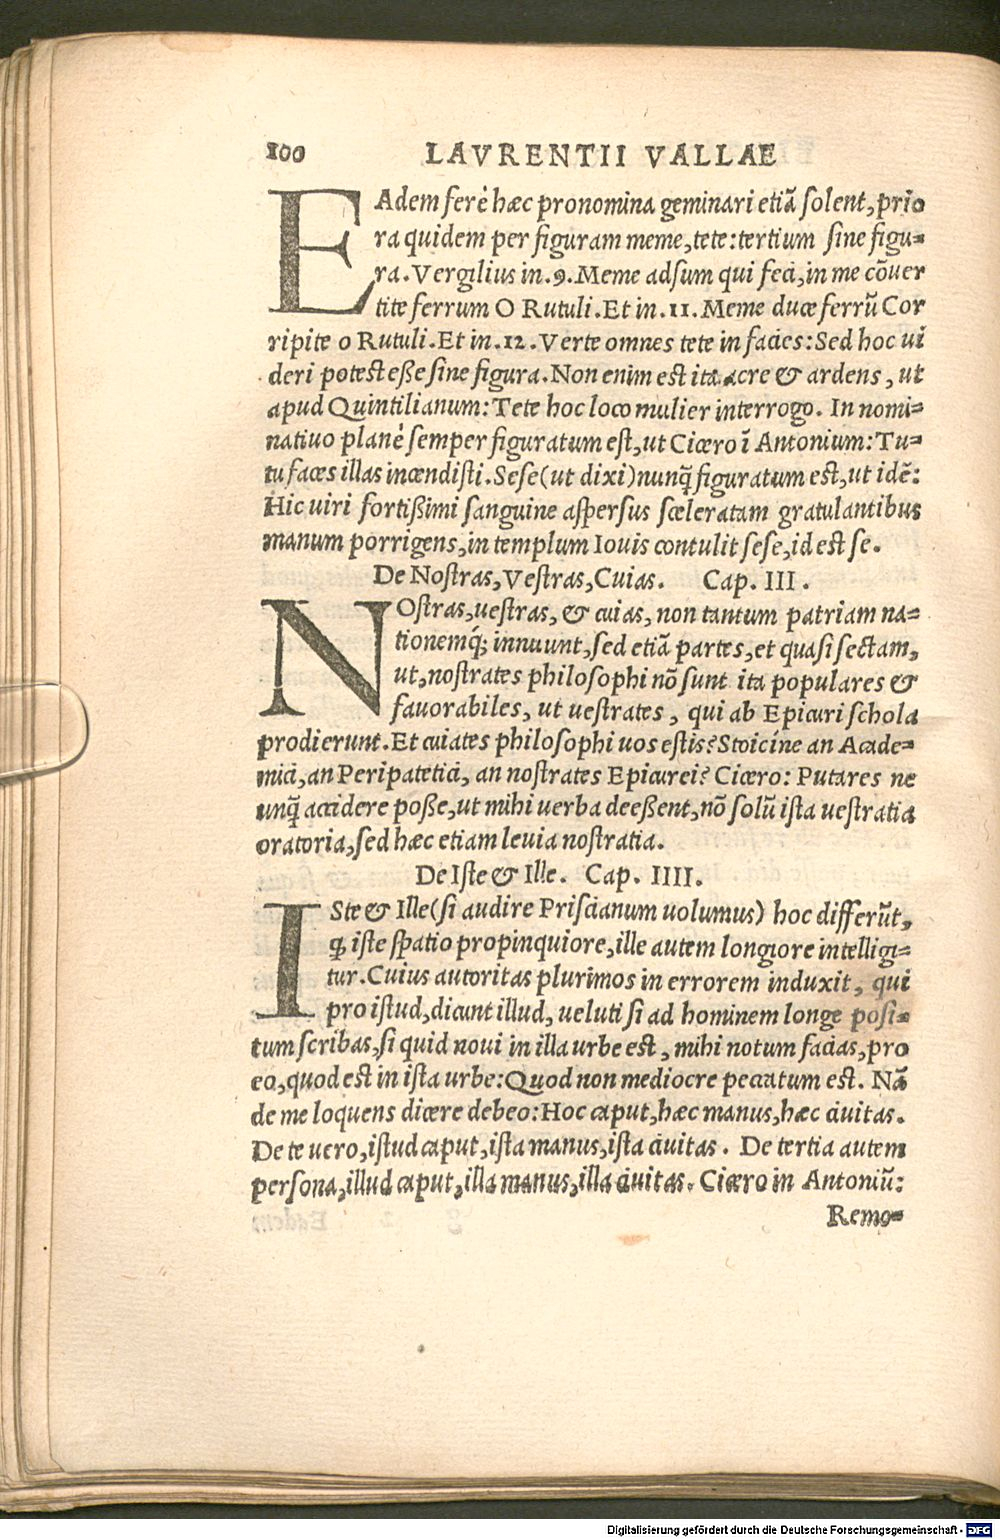 100 LAVRENTII VALLAE
EAdem ferè hæc pronomina geminari etiā solent, prio
ra quidem per figuram meme, tete: tertium sine figu-
ra. Vergilius in. 9. Meme adsum qui feci, in me cōuer
tite ferrum O Rutuli. Et in. 11. Meme duce ferrū Cor
ripite o Rutuli. Et in. 12. Verte omnes tete in facies: Sed hoc ui
deri potest eße sine figura. Non enim est ita acre & ardens, ut
apud Quintilianum: Tete hoc loco mulier interrogo. In nomi-
natiuo planè semper figuratum est, ut Cicero ī Antonium: Tu-
tu faces illas incendisti. Sese (ut dixi) nunq̄ figuratum est, ut idē:
Hic uiri fortißimi sanguine aspersus sceleratam gratulantibus
manum porrigens, in templum Iouis contulit sese, id est se.
De Nostras, Vestras, Cuias. Cap. III.
NOstras, uestras, & cuias, non tantum patriam na-
tionemq́; innuunt, sed etiā partes, et quasi sectam,
ut, nostrates philosophi nō sunt ita populares &
fauorabiles, ut uestrates, qui ab Epicuri schola
prodierunt. Et cuiates philosophi uos estis? Stoicíne an Acade-
mici, an Peripatetici, an nostrates Epicurei? Cicero: Putares ne
unq̄ accidere poße, ut mihi uerba deeßent, nō solū ista uestratia
oratoria, sed hæc etiam leuia nostratia.
De Iste & Ille. Cap. IIII.
ISte & Ille (si audire Priscianum uolumus) hoc differūt,
ꝙ iste spatio propinquiore, ille autem longiore intelligi-
tur. Cuius autoritas plurimos in errorem induxit, qui
pro istud, dicunt illud, ueluti si ad hominem longe posi-
tum scribas, si quid noui in illa urbe est, mihi notum facias, pro
eo, quod est in ista urbe: Quod non mediocre peccatum est. Nā
de me loquens dicere debeo: Hoc caput, hæc manus, hæc ciuitas.
De te uero, istud caput, ista manus, ista ciuitas. De tertia autem
persona, illud caput, illa manus, illa ciuitas. Cicero in Antoniū:
Remo-
Digitalisierung gefördert durch die Deutsche Forschungsgemeinschaft - DFG